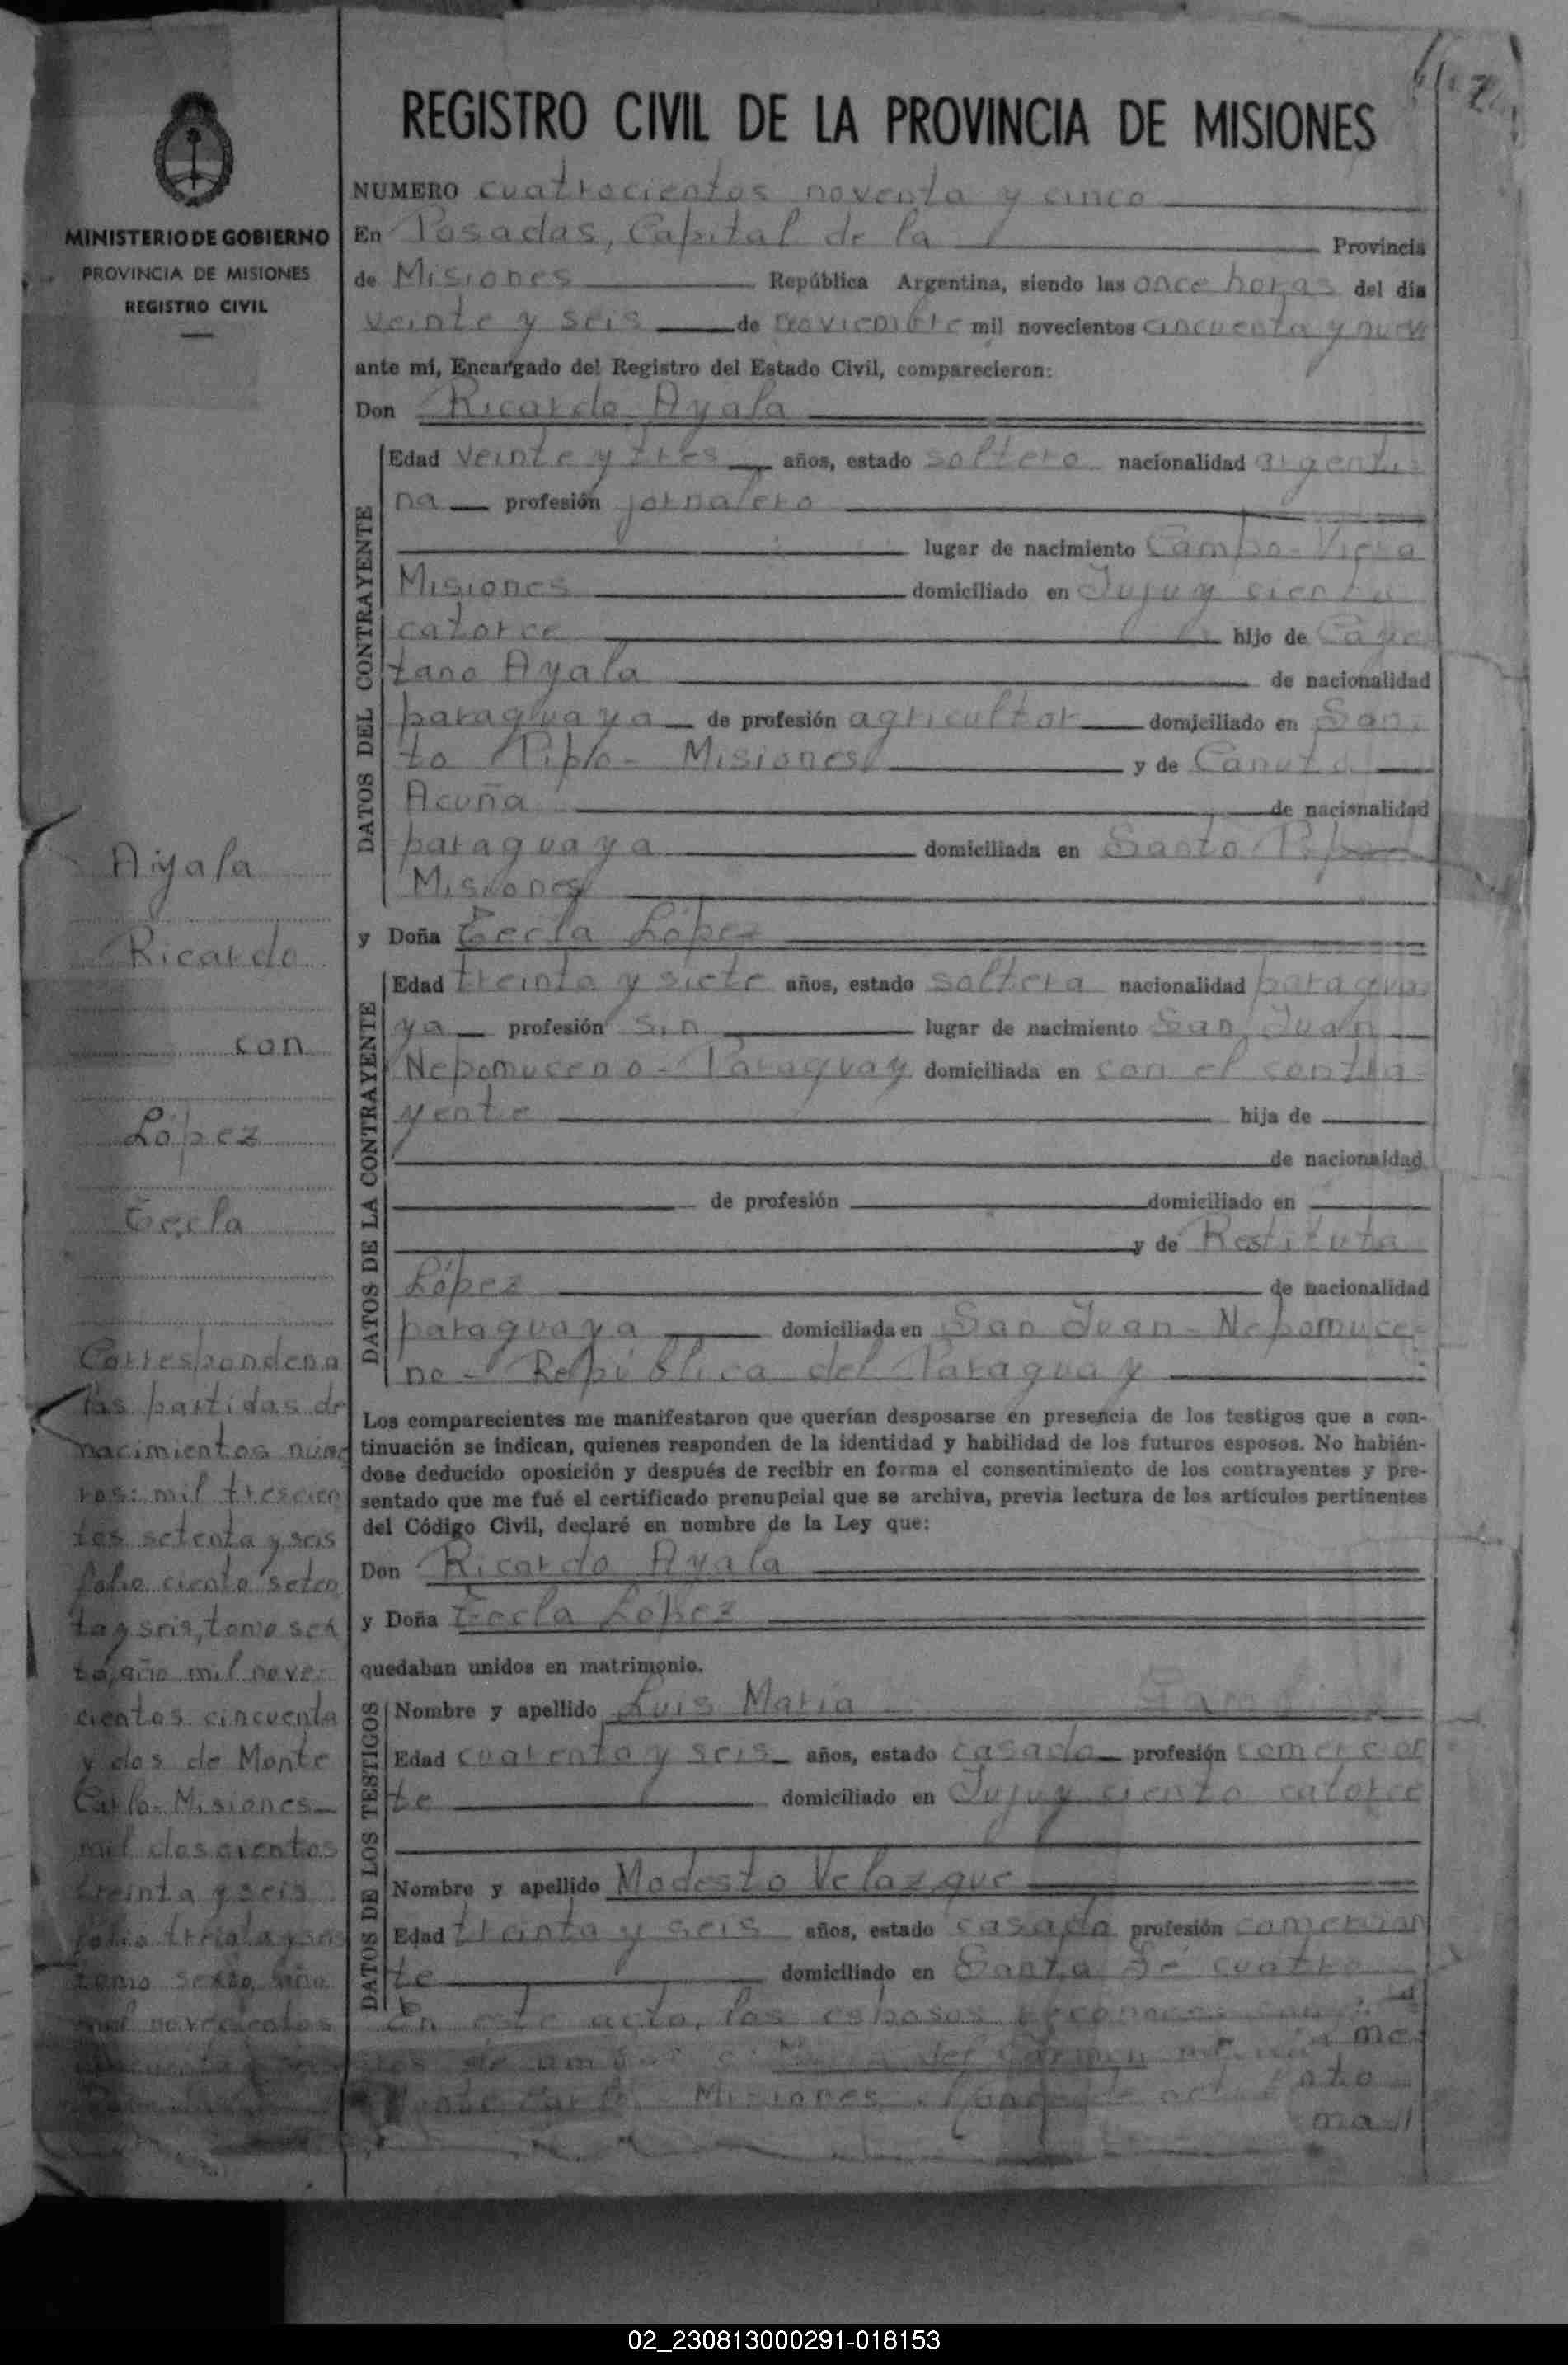 REGISTRO CIVIL DE LA PROVINCIA DE MISIONES
MINISTERIO DE GOBIERNO
PROVINCIA DE MISIONES
REGISTRO CIVIL
NUMERO cuatrocientos noventa y cinco
En Posadas, Capital de la Provincia
de Misiones República Argentina, siendo las once horas del día
veinte y seis de noviembre mil novecientos cincuenta y nueve
ante mí, Encargado del Registro del Estado Civil, comparecieron:
Don Ricardo Ayala
DATOS DEL CONTRAYENTE
Edad veinte y tres años, estado soltero nacionalidad argenti
na profesión jornalero
lugar de nacimiento Campo-Viera
Misiones domiciliado en Jujuy ciento
catorce hijo de Caye
tano Ayala de nacionalidad
paraguaya de profesión agricultor domiciliado en San
to Pipo- Misiones y de Canuta
Acuña de nacionalidad
paraguaya domiciliada en Santo Pipo
Misiones
y Doña Tecla López
DATOS DE LA CONTRAYENTE
Edad treinta y siete años, estado soltera nacionalidad paragua
ya profesión sin lugar de nacimiento San Juan
Nepomuceno - Paraguay domiciliada en con el contra
yente hija de
de nacionaidad
de profesión domiciliado en
y de Restituta
López de nacionalidad
paraguaya domiciliada en San Juan - Nepomuce
no - República del Paraguay
Los comparecientes me manifestaron que querían desposarse en presencia de los testigos que a con-
tinuación se indican, quienes responden de la identidad y habilidad de los futuros esposos. No habién-
dose deducido oposición y después de recibir en forma el consentimiento de los contrayentes y pre-
sentado que me fué el certificado prenupcial que se archiva, previa lectura de los artículos pertinentes
del Código Civil, declaré en nombre de la Ley que:
Don Ricardo Ayala
y Doña Tecla López
quedaban unidos en matrimonio.
DATOS DE LOS TESTIGOS
Nombre y apellido Luis María
Edad cuarenta y seis años, estado casado profesión comercian
te domiciliado en Jujuy ciento catorce
Nombre y apellido Modesto Velazque
Edad treinta y seis años, estado casado profesión comercian
te domiciliado en Santa Fé cuatro
En este acto, los esposos reconocen
María del Carmen
Monte Carlo Misiones
Ayala
Ricardo
con
López
Tecla
Corresponden a
las partidas de
nacimientos núme
ros: mil trescien
tos setenta y seis
folio ciento seten
ta y seis, tomo sex
to, año mil nove
cientos cincuenta
y dos de Monte
Carlo- Misiones
mil doscientos
treinta y seis
folio treinta y seis
tomo sexto, año
mil novecientos
02_230813000291-018153